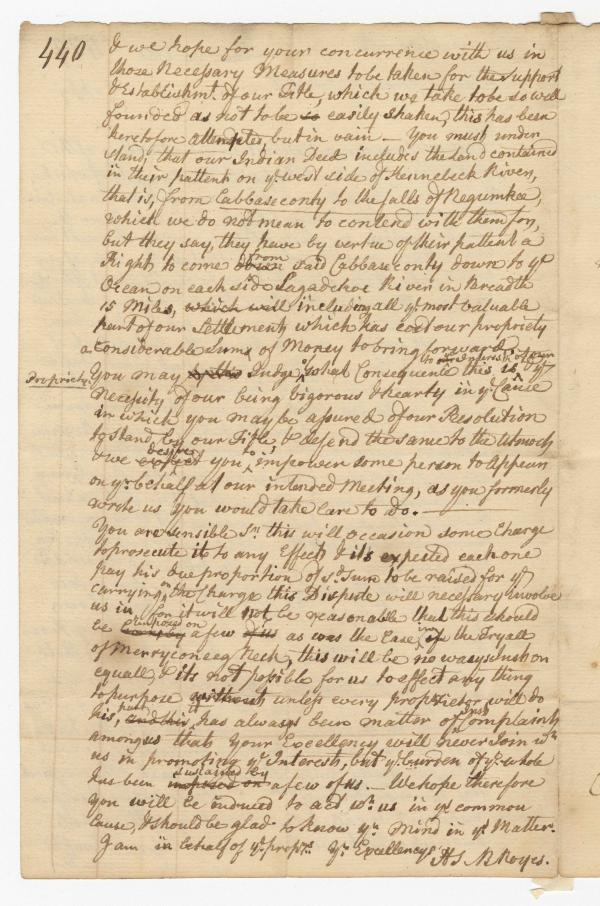 440
& we hope for your concurrence with us in
those Necessary Measures to be taken for the Support
& Establishmt. of our Title, which we take to be so well
founded as not to be so easily shaken, this has been
heretofore attempted, but in vain — You must under
stand, that our Indian Deed includes the Land contained
in their pattent on ye. west side of Kennebeck River,
that is, from Cabbaseconty to the falls of Negumkee,
which we do not mean to contend with them for,
but they say, they have by vertue of their pattent a
Right to come from said Cabbaseconty down to ye
Ocean on each side Sagadehoc River in Breadth
15 Miles, which will including all ye. most valuable
part of our Settlements which has cost our propriety
a Considerable Sums of Money to bring forward
to our Interest of our
Propriety.
You may Judge, what Consequence this is, & ye
necessity of our being vigorous & hearty in ye Cause
in which you may be assured of our Resolution
to stand by our Title & defend the same to the utmost
& we desire you to impower some person to appear
on yr. behalf at our intended Meeting, as you formerly
wrote us you would take care to do. —
You are sensible Sr. this will occasion some Charge
to prosecute it to any Effect & its expected each one
pay his due proportion of sd. Sum to be raised for ye
carrying on the Charge this Dispute will necessary involve
us in, for it will not be reasonable that this should
be impos'd on a few of us as was the Case in the Tryall
of Merryconeeg Neck, this will be no ways just on
equall, & its not possible for us to effect any thing
to purpose without unless every proprietor will do
his part, and this it has always been matter of Complaint
among us that Your Excellency will never Join wth
us in promoting ye. Interest, but ye. burden of ye. whole
has been sustained by imposed on a few of us. — We hope therefore
You will be induced to act wth. us in ye common
Cause, & should be glad to know yr. mind in ye. Matter.
I am in behalf of ye. proprs. Yr. Excellencys HS B Noyes.